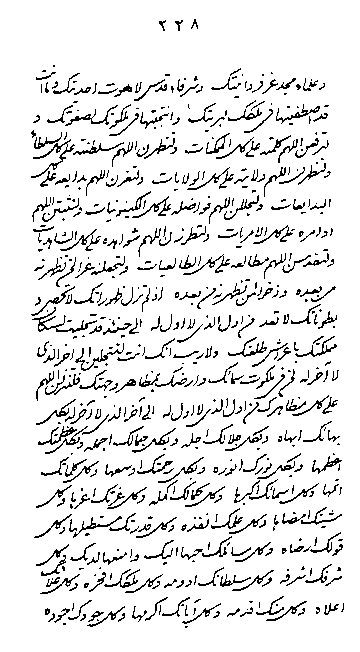 ٢٢٨
وعلماء مجد عز فردانيتك وشرفاء قدس لاهوت احديتك وما انت
قد اصطفيتها في ملكك لبريتك وانتجبتها في ملكوتك لصفوتك و
لترفعن اللهم كلمته على كل الممكنات ولتظهرن اللهم سلطنته على كل
ولتظهرن اللهم ولايته على كل الولايات ولتعززن اللهم بدايعه على
البدايعات ولتجللن اللهم فواضله على كل الكينونيات ولتثبتن اللهم
اوامره على كل الامريات ولتطرزن اللهم شواهده على كل
ولتقدسن اللهم مطالعه على كل الطالعيات ولتجعلنه عز لمن تظهرنه
من بعده وذخرا لمن تظهرنه من بعده اذ لم تزل ظهوراتك لا تحصى و
بطوناتك لا تعد من اول الذي لا اول له الى حينئذ قد تجليت
مملكتك باعراش طلعتك ولا ريب انك انت لتتجلين الى اخر الذي
لا اخر له لمن في ملكوت سمائك وارضك بمظاهر وجهتك فلتنزلن اللهم
على كل مظاهرك من اول الذي لا اول له الى آخر الذي لا آخر له بكل
بهائك ابهاه وبكل جلالك اجله وبكل جمالك اجمله وبكل عظمتك
اعظمها وبكل نورك انوره وبكل رحمتك اوسعها وبكل كلماتك
اتمها وكل اسمائك اكبرها وبكل كمالك اكمله وكل عزتك اعزها وكل
مشيتك امضاها وكل علمك انفذه وكل قدرتك مستطيلها وكل
قولك ارضاه وكل مسائلك احبها اليك وامنعها لديك وكل
شرفك اشرفه وكل سلطانك ادومه وكل ملكك افخره وكل علائك
اعلاه وكل منك اقدمه وكل آياتك اكرمها وكل جودك اجوده